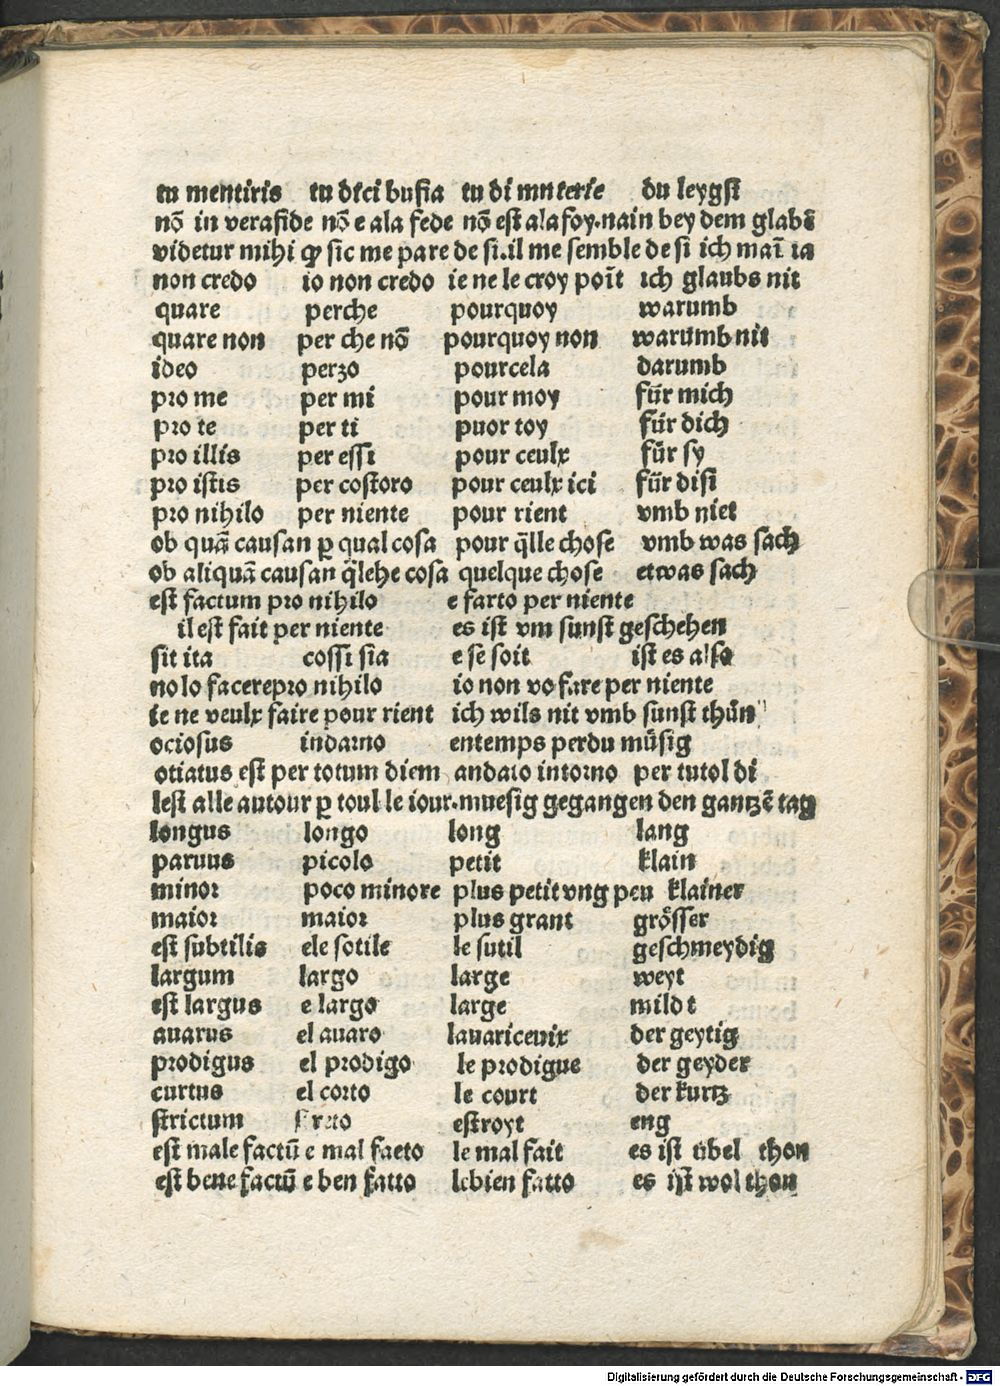 tu mentiris tu dici busia tu di mnterie du leygst
nō in verafide nō e ala fede nō est ala foy.nain bey dem glabē
videtur mihi ꝙ sic me pare de si.il me semble de si ich maī ia
non credo io non credo ie ne le croy poīt ich glaubs nit
quare perche pourquoy warumb
quare non per che nō pourquoy non warumb nit
ideo perzo pourcela darumb
pro me per mi pour moy für mich
pro te per ti puor toy für dich
pro illis per essi pour ceulx für sy
pro istis per costoro pour ceulx ici für disi
pro nihilo per niente pour rient vmb niet
ob quā causan ꝑ qual cosa pour q̄lle chose vmb was sach
ob aliquā causan q̄lehe cosa quelque chose etwas sach
est factum pro nihilo e farto per niente
il est fait per niente es ist vm sunst geschehen
sit ita cossi sia e se soit ist es also
nolo facerepro nihilo io non vo fare per niente
ie ne veulx faire pour rient ich wils nit vmb sunst thůn
ociosus indarno entemps perdu můsig
otiatus est per totum diem andato intorno per tutol di
lest alle autour ꝑ toul le iour.muesig gegangen den gantzē tag
longus longo long lang
paruus picolo petit klain
minor poco minore plus petit vng peu klainer
maior maior plus grant grösser
est subtilis ele sotile le sutil geschmeydig
largum largo large weyt
est largus e largo large mildt
auarus el auaro lauariceuix der geytig
prodigus el prodigo le prodigue der geyder
curtus el corto le court der kurtz
strictum estroyt eng
est male factū e mal faeto le mal fait es ist übel thon
est bene factū e ben fatto lebien fatto es ist wol thon
Digitalisierung gefördert durch die Deutsche Forschungsgemeinschaft - DFG